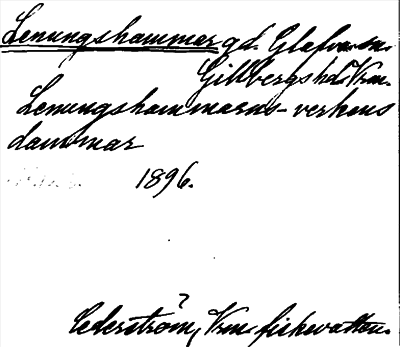 Lenungshammar gd. Glafva sn.
Gillbergs hd. Vrm.
Lenungshammarns-verkens
dammar
1896.
?
Cederström, Vrm. fiskevatten.